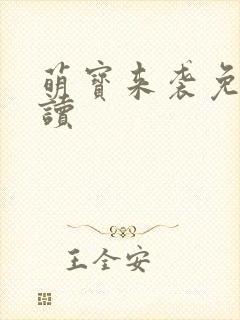 萌寶来袭免
讀
王全安